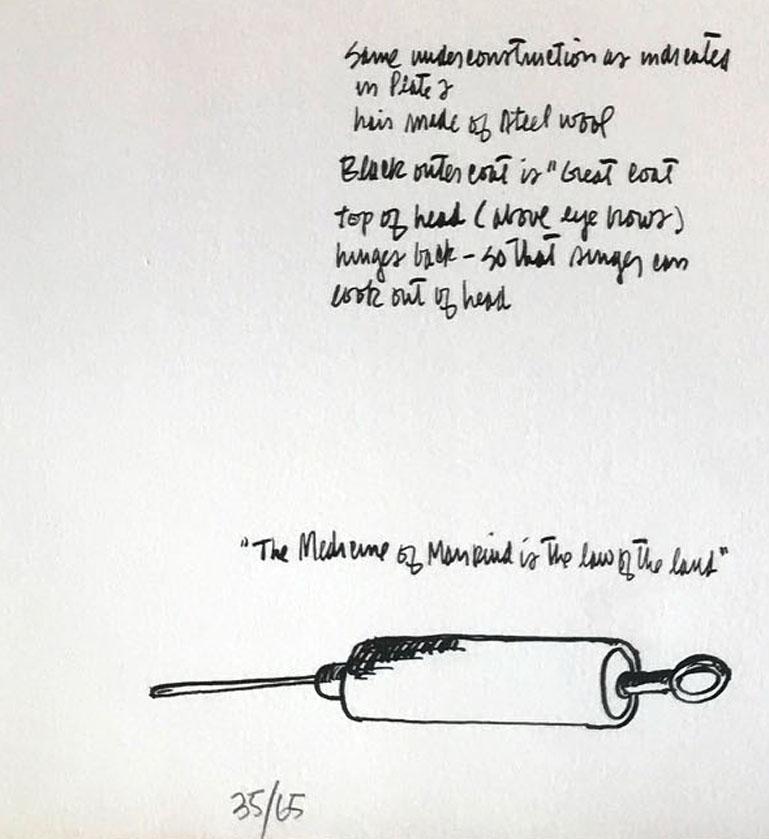 Same underconstruction as indicated
in Plate 2
hair made of steel wool
Black outer coat is "Great coat
top of head (above eye brows)
hinges back - so that singer can
look out of head
"The Medicine of Mankind is the law of the land"
35/65